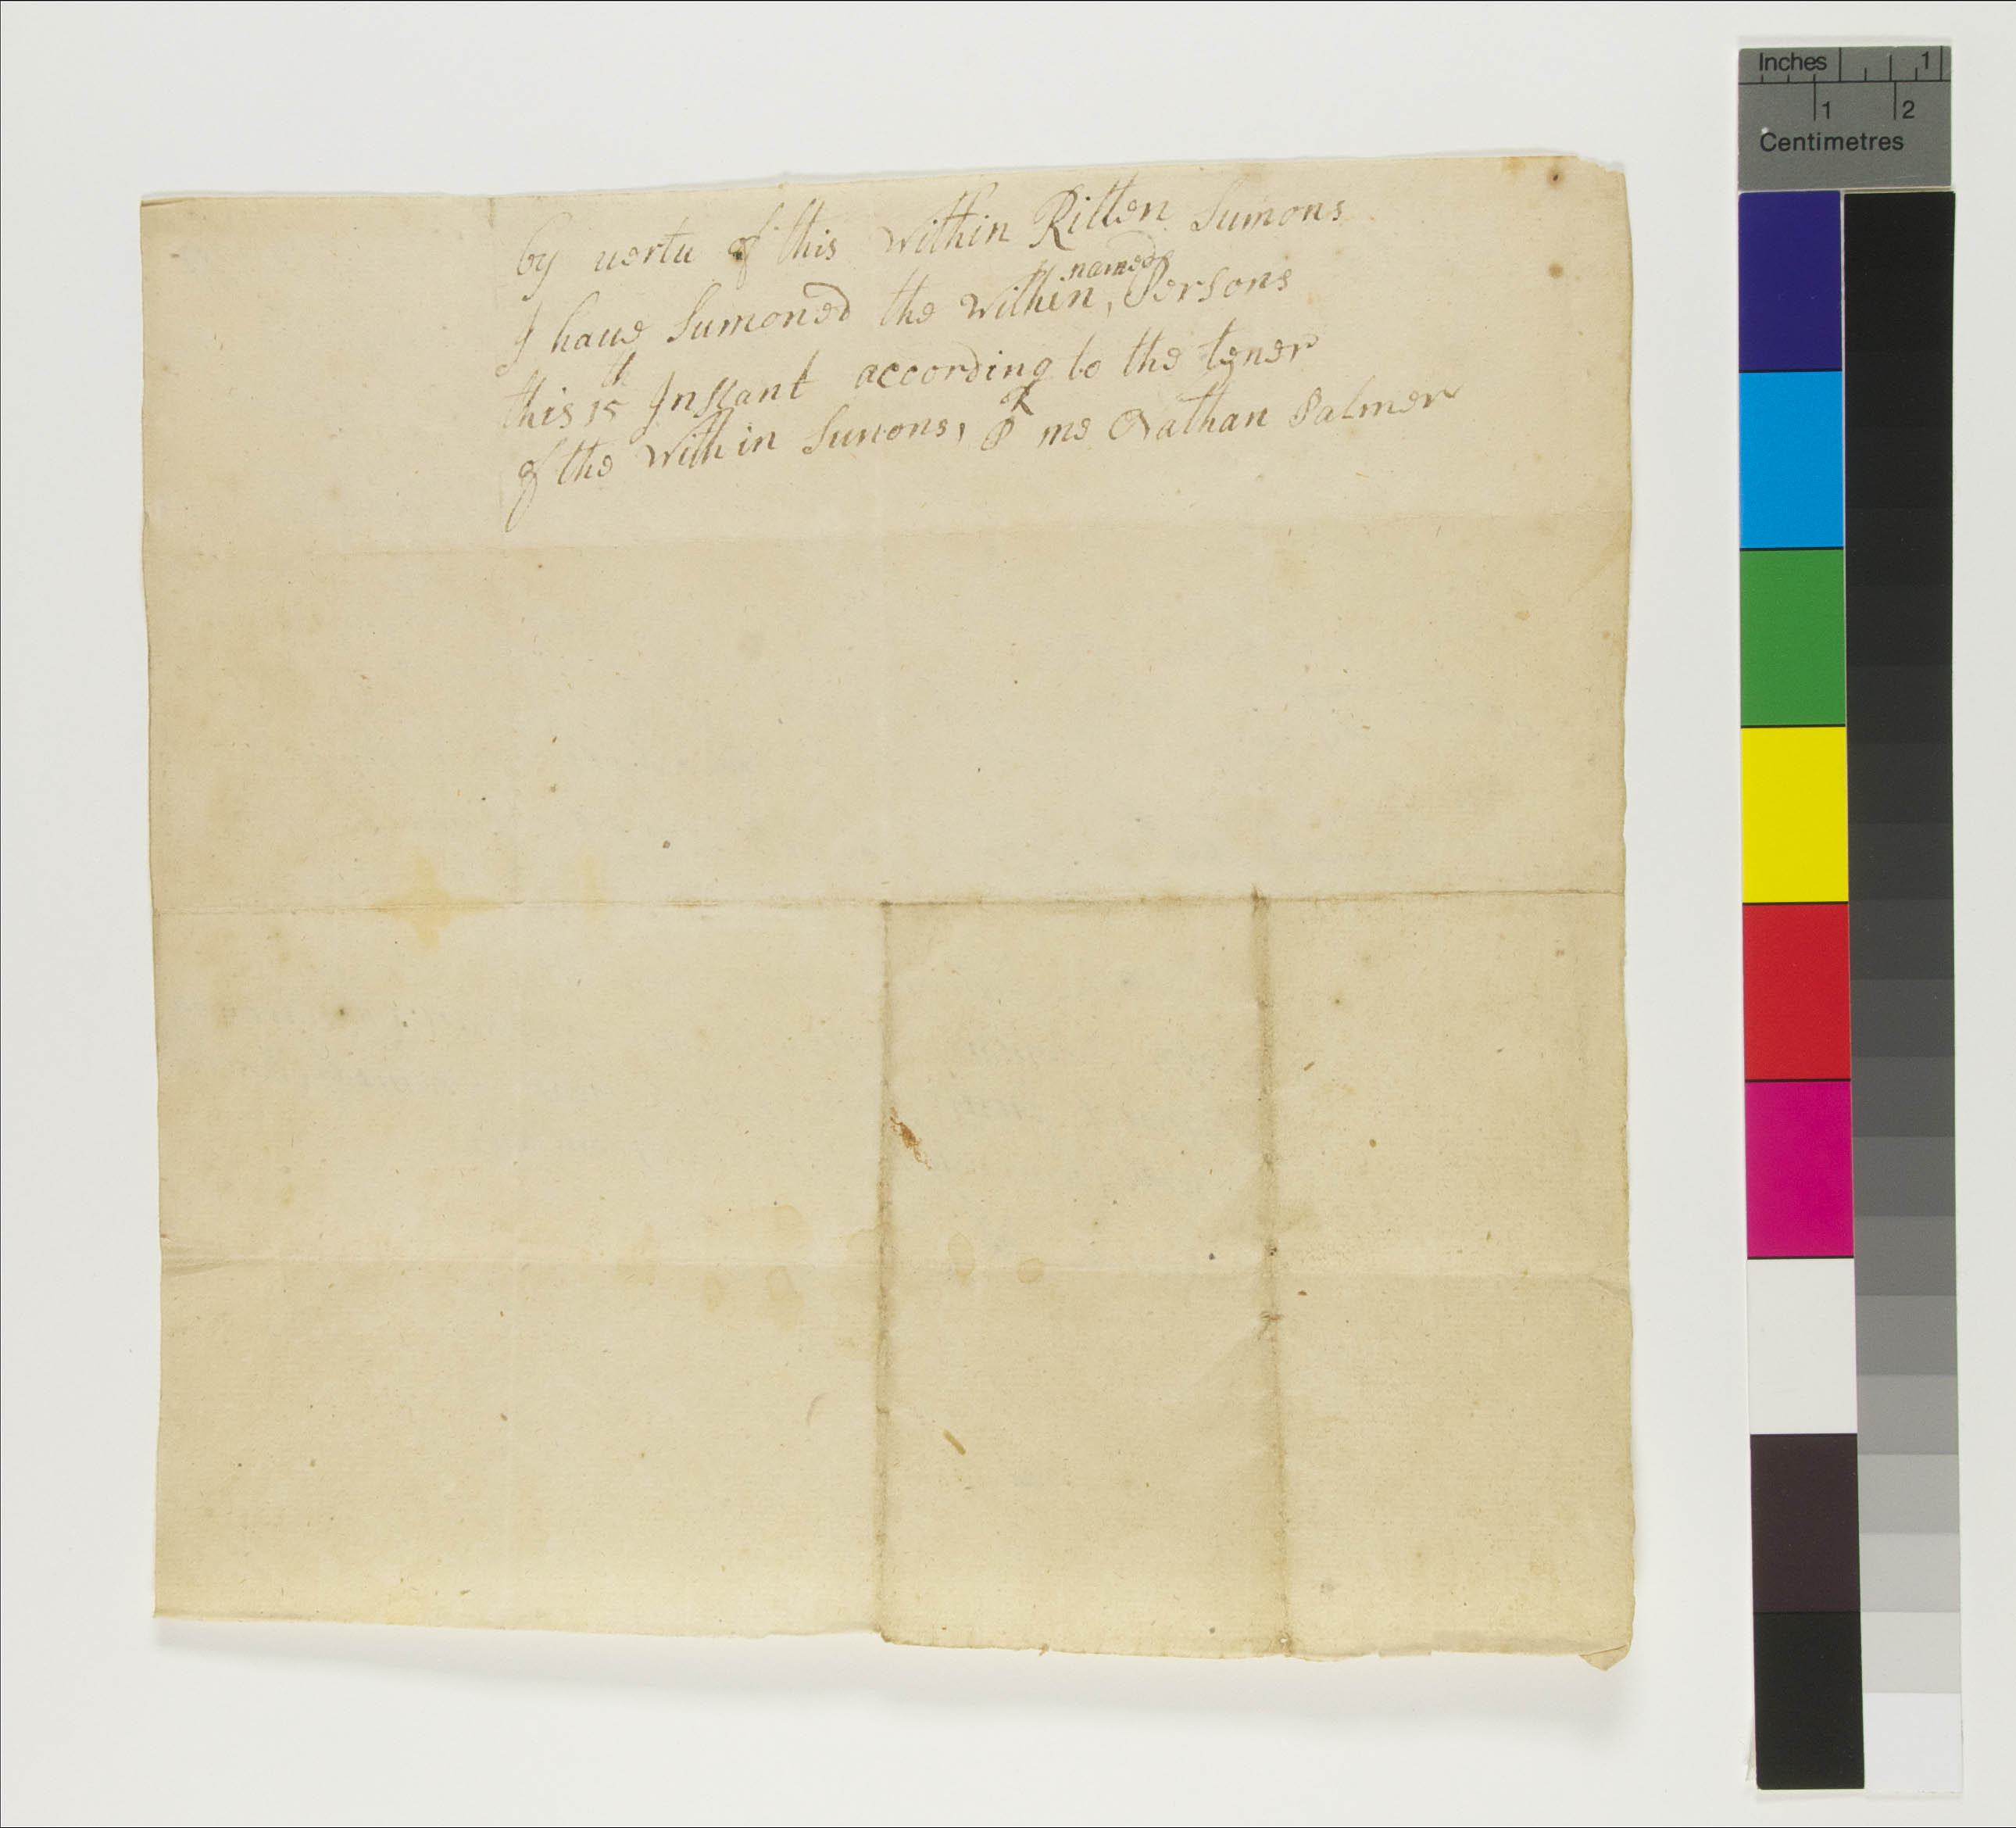 Inches 1
1 2
Centimetres
by uertu of this within Ritten Sumons
I haue Sumoned the within, named Persons
this 15th Instant according to the tener
of the within Sumons, P me Nathan Palmer